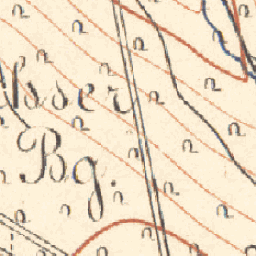 Asser
Bg.